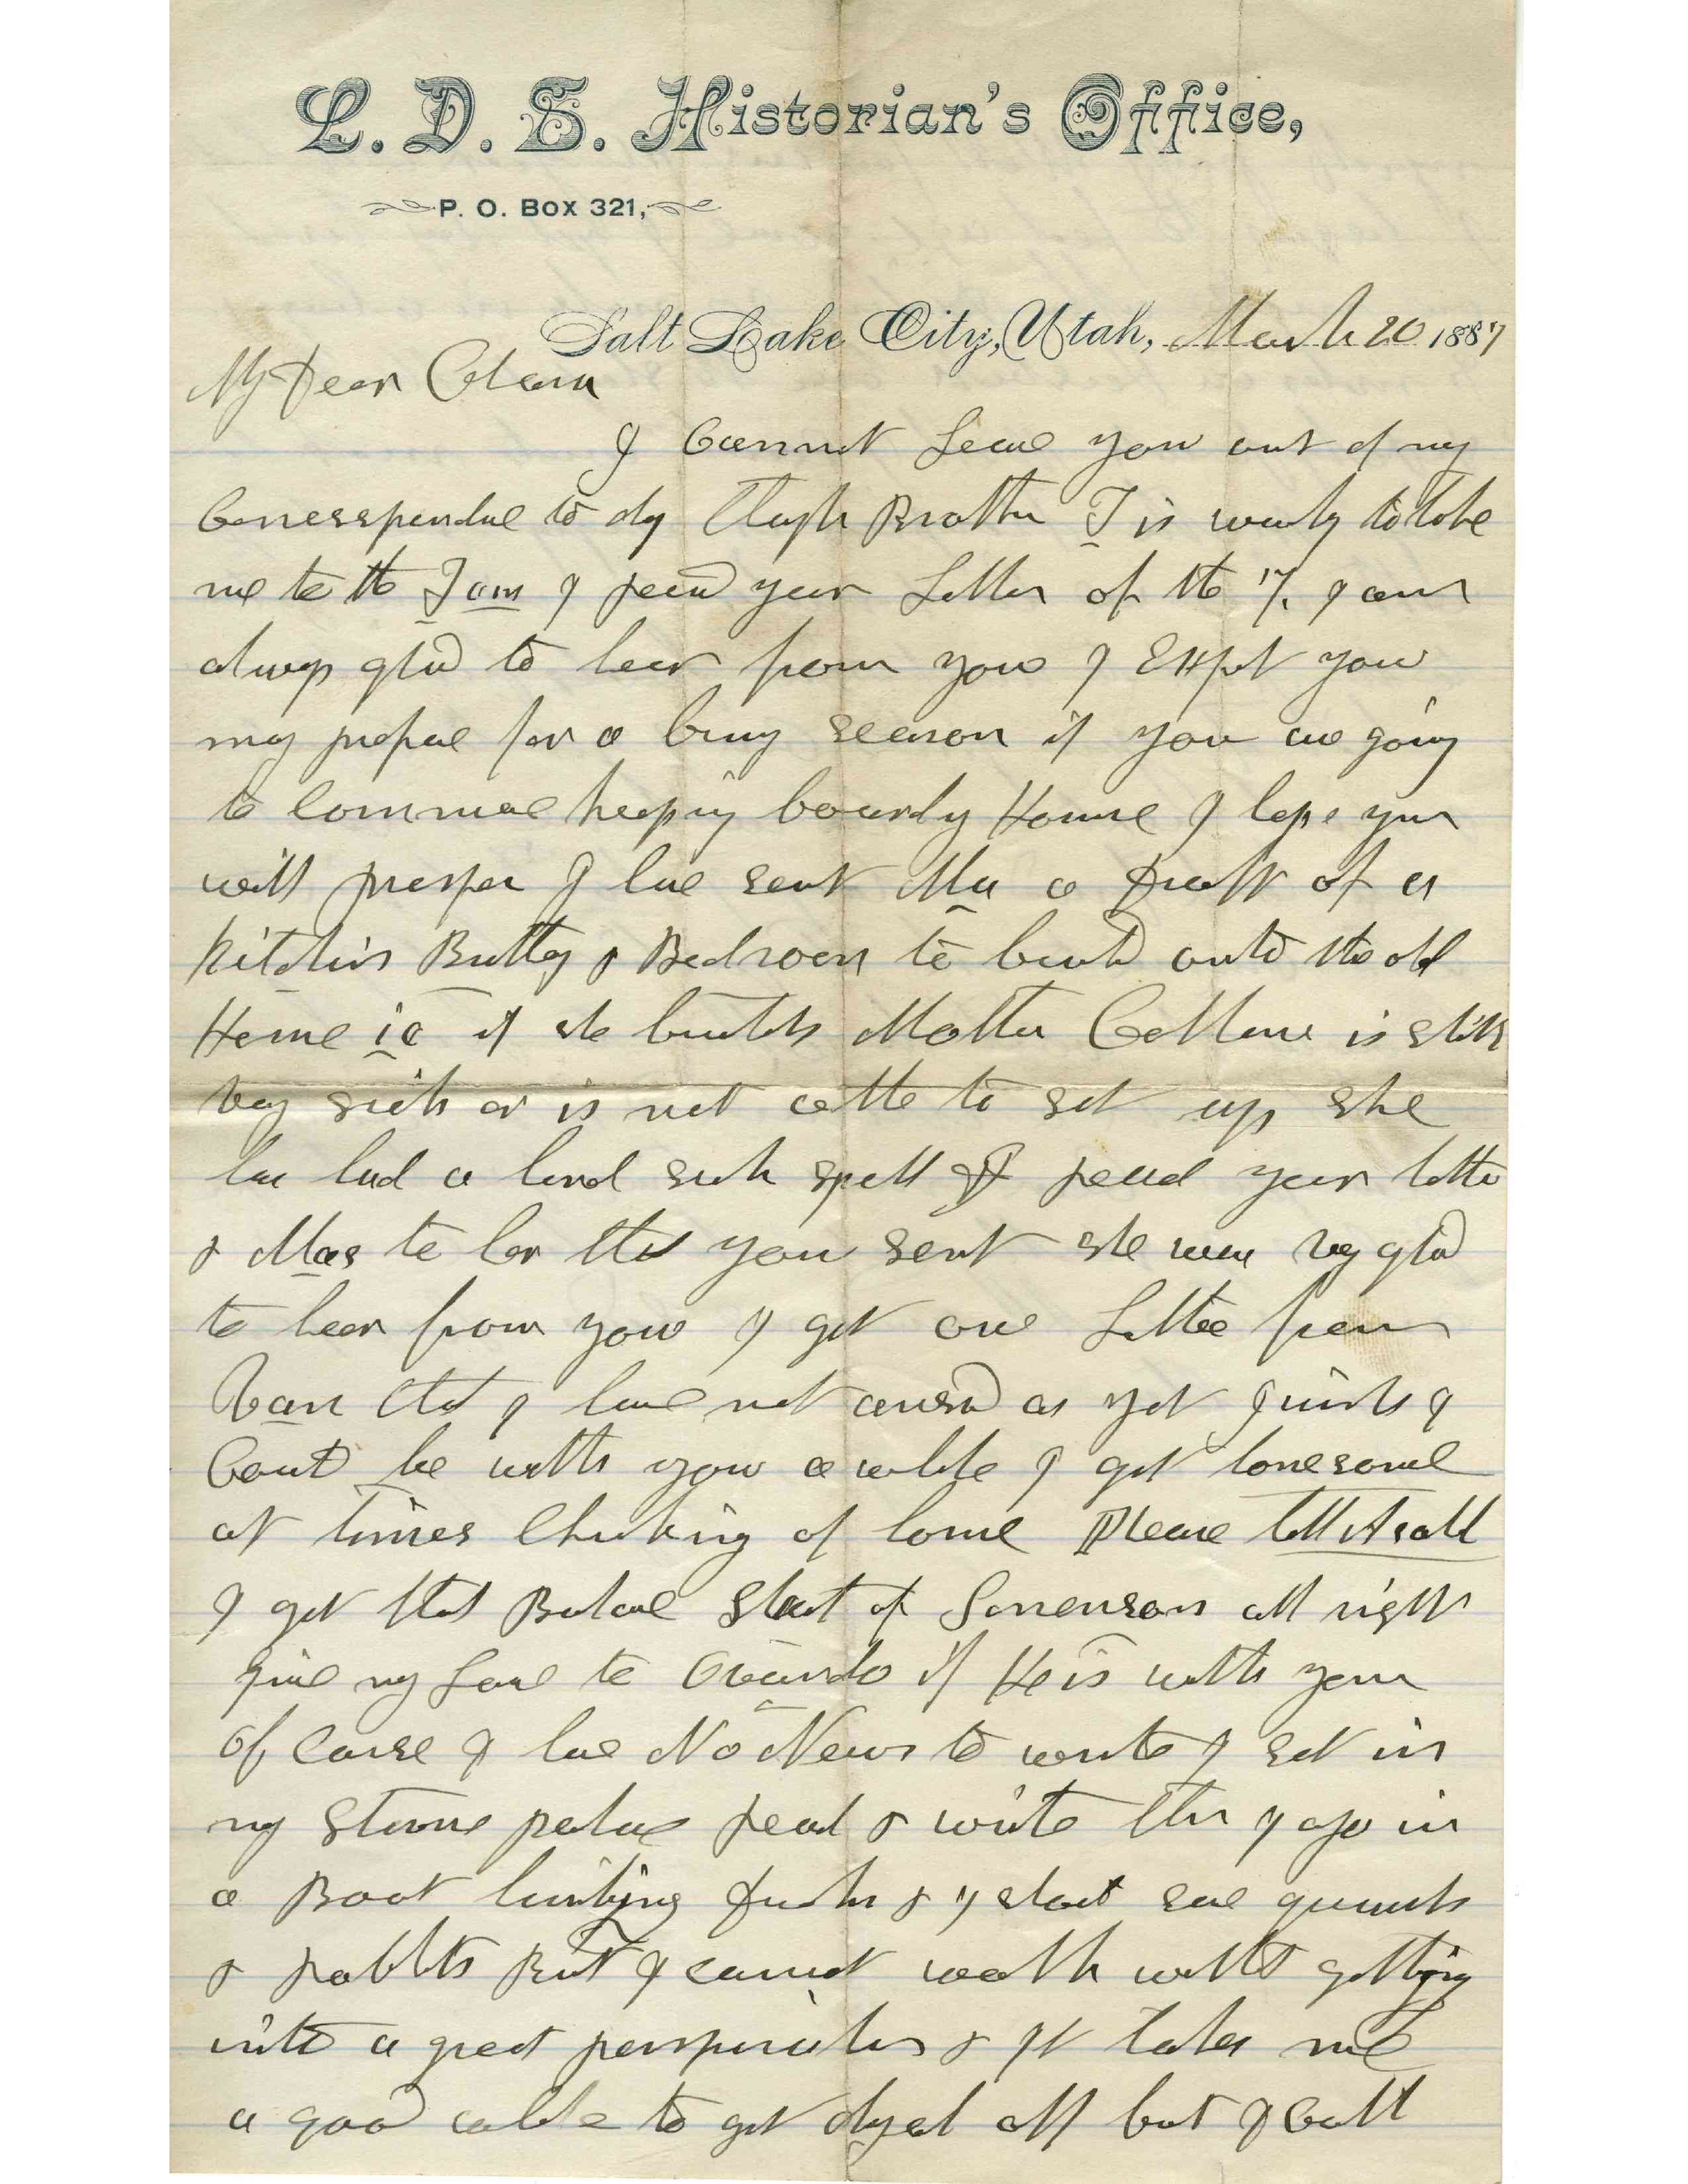 L. D. S. Historian's Office,
P. O. Box 321,
Salt Lake City, Utah, March 20 1887
My Dear Clara
I Cannot Leave you out of my
Correspondence to day though Brother T is waiting to take
me to the Farm I recd your Letter of the 17. I am
always glad to hear from you I Expect you
may prepare for a busy season if you are going
to Commence keeping boarding House I hope you
will prosper I have sent Ma a draft of a
Kitchin Buttry & Bedroom to build onto the old
Home ie if she builds Mother is still
very sick or is not able to set up she
has had a hard sick spell I read your letter
& Mas to her that you sent she was very glad
to hear from you I got one Letter from
Van that I have not answd as yet I wish I
Could be with you awhile I get lonesome
at times thinking of home Please tell Asahel
I got that Balance Sheet of Sorrenson all right
give my Love to Ovando if He is with you
Of Course I have No News to write I set in
my Stone palace read & write then I go in
a Boat hunting ducks & I shoot some quails
& rabbits But I cannot walk without getting
into a great perspiration & It takes me
a good while to get dryed off but I call